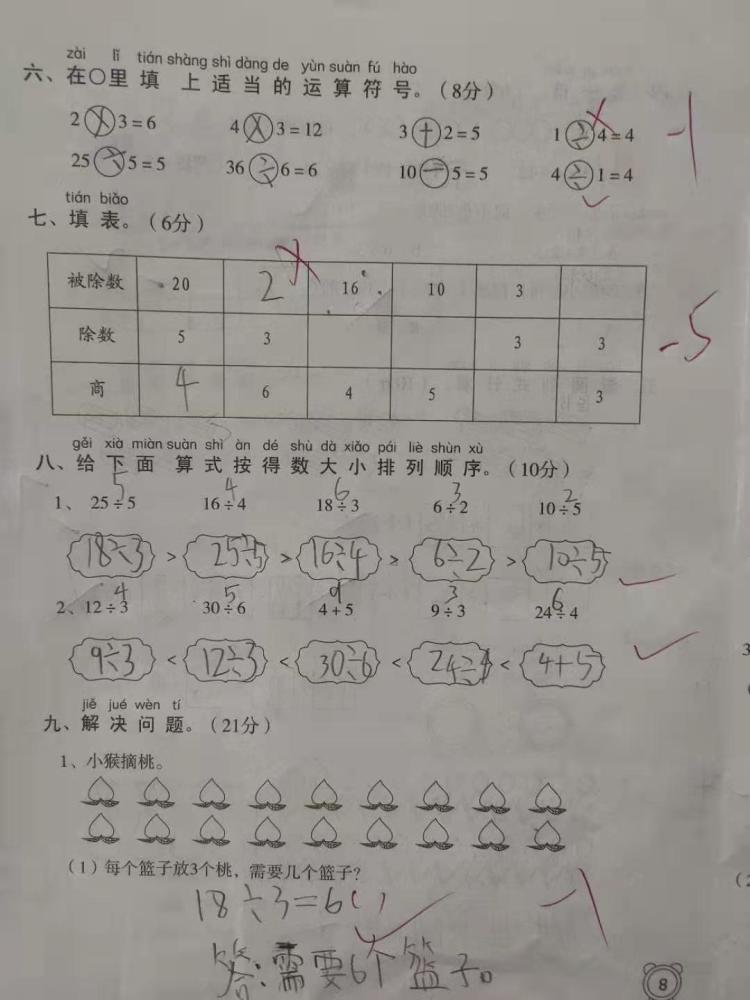 zài lǐ tián shàng shì dàng de yùn suàn fú hào
六、在○里填上适当的运算符号。(8分)
2×3=6 4×3=12 3+2=5 1÷4=4 -1
25÷5=5 36÷6=6 10-5=5 4÷1=4
tián biǎo
七、填表。(6分)
被除数 20 2 16 10 3
除数 5 3 3 3 -5
商 4 6 4 5 3
gěi xià miàn suàn shì àn dé shù dà xiǎo pái liè shùn xù
八、给下面算式按得数大小排列顺序。(10分)
5 4 6 3 2
1、25÷5 16÷4 18÷3 6÷2 10÷5
18÷3 > 25÷5 > 16÷4 > 6÷2 > 10÷5
4 5 9 3 6
2、12÷3 30÷6 4+5 9÷3 24÷4
9÷3 < 12÷3 < 30÷6 < 24÷4 < 4+5
jiě jué wèn tí
九、解决问题。(21分)
1、小猴摘桃。
(1)每个篮子放3个桃，需要几个篮子?
18÷3=6( ) -1
答:需要6个篮子。
8